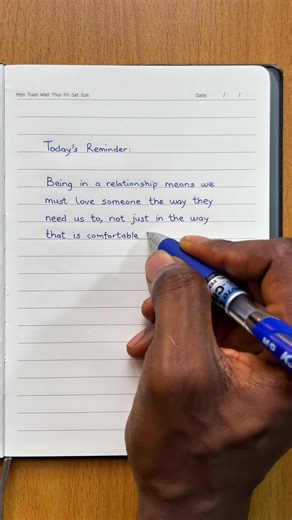 Mon Tues Wed Thur Fri Sat Sun
Date: / /
Today's Reminder:
Being in a relationship means we
must love someone the way they
need us to, not just in the way
that is comfortable